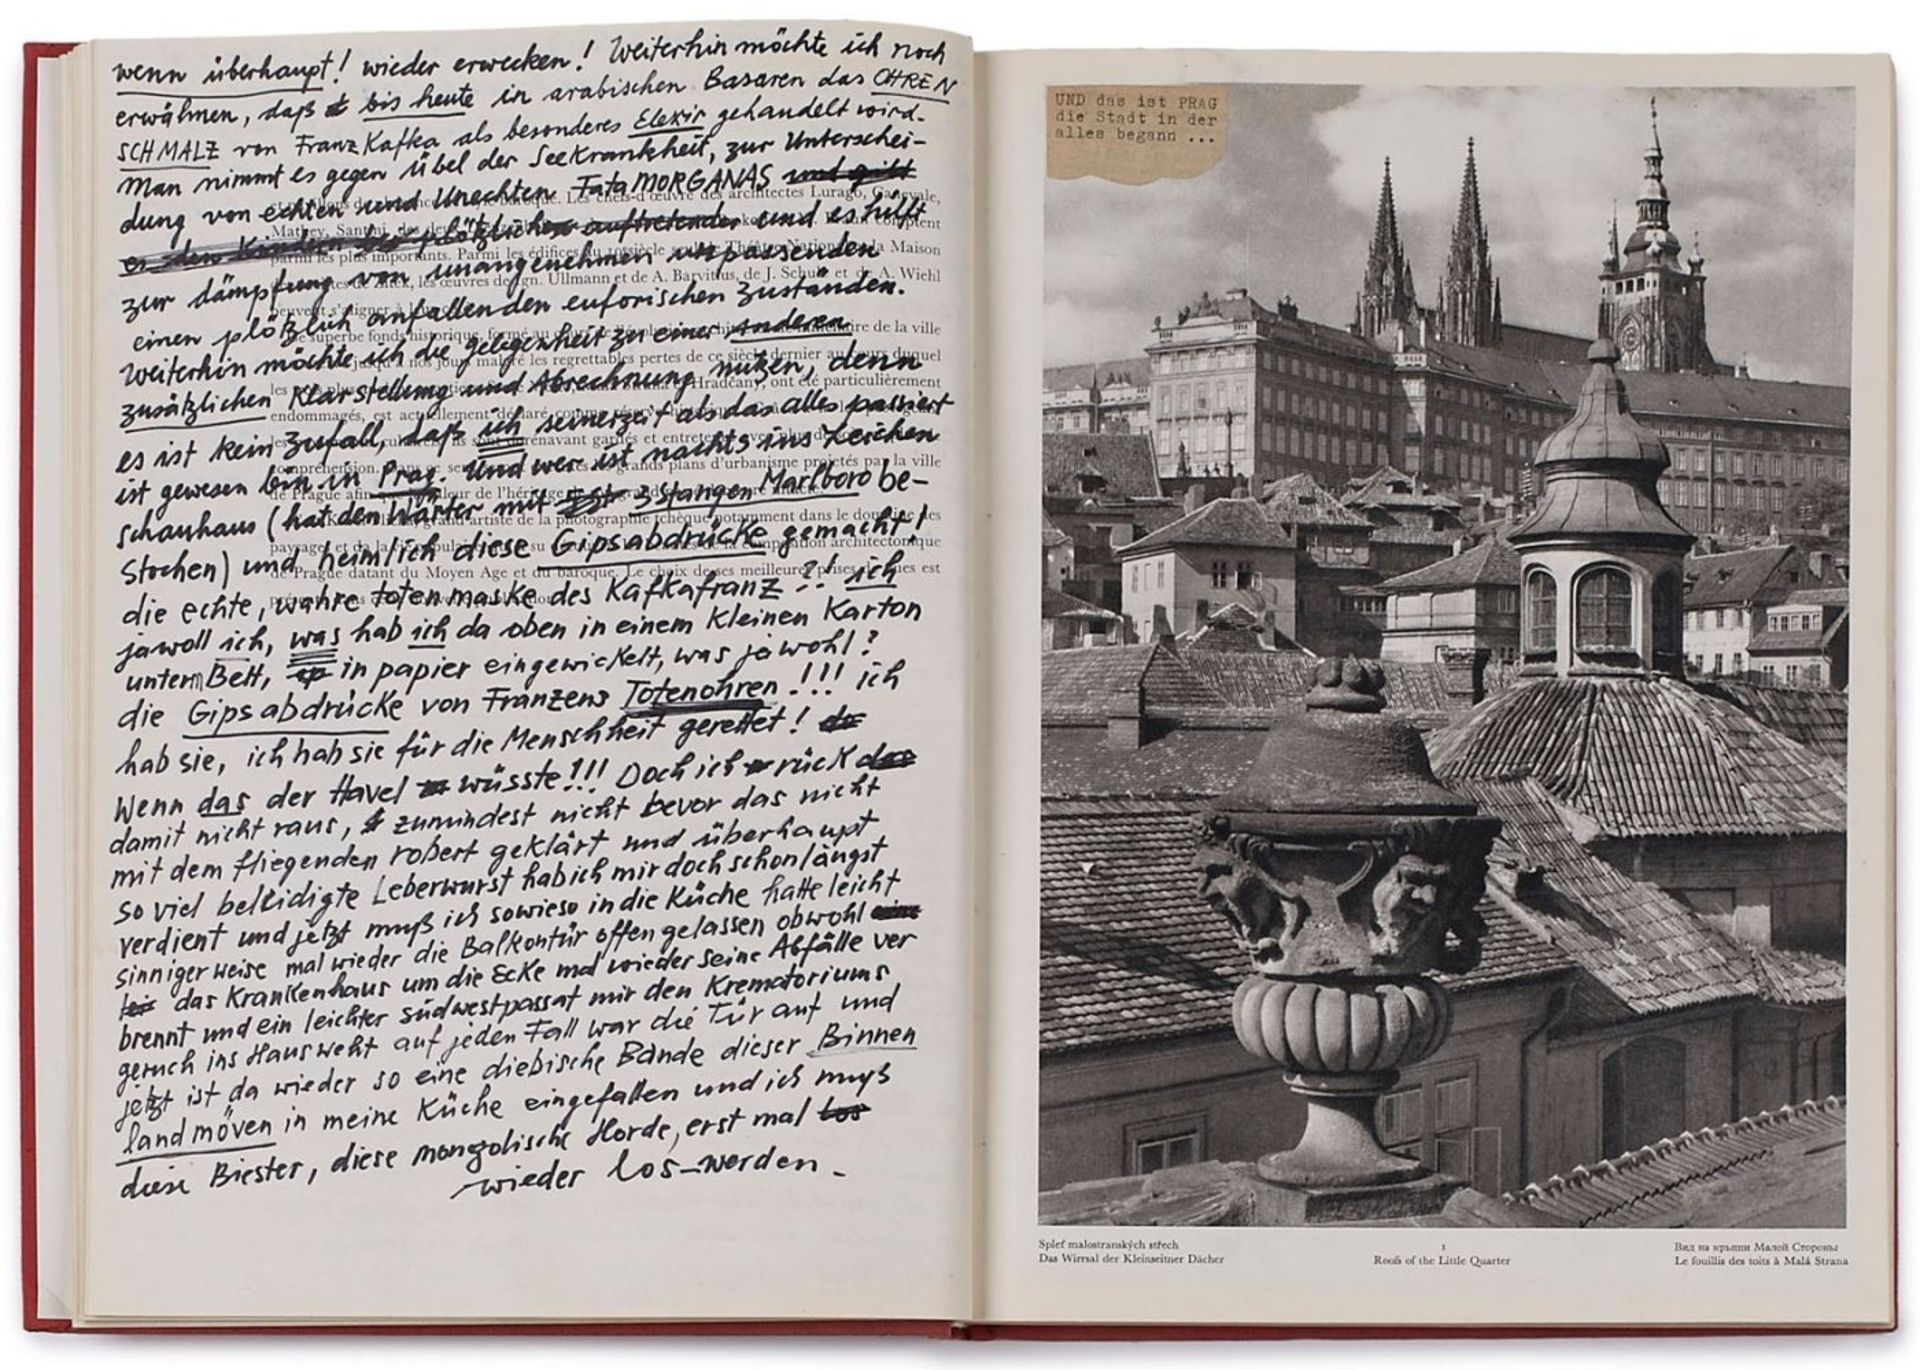 wenn überhaupt! wieder erwecken! Weiterhin möchte ich noch
erwähnen, daß bis heute in arabischen Basaren das OHREN
SCHMALZ von Franz Kafka als besonderes Elexir gehandelt wird.
Man nimmt es gegen Übel der Seekrankheit, zur Unterschei-
dung von echten und Unechten Fata MORGANAS und gibt
plötzlich auftretender und es hilft
zur dämpfung von unangenehmen unpassenden
einen plötzlich anfallenden euforischen Zuständen.
Weiterhin möchte ich die gelegenheit zu einer anderen
zusätzlichen Klarstellung und Abrechnung nutzen, denn
es ist kein Zufall, daß ich seinerzeit als das alles passiert
ist gewesen bin in Prag. Und wer ist nachts ins Leichen
schauhaus (hat den Wärter mit 3 Stangen Marlboro be-
stochen) und heimlich diese Gipsabdrücke gemacht!
die echte, wahre totenmaske des Kafkafranz?! ich
jawoll ich, was hab ich da oben in einem kleinen Karton
unterm Bett, in papier eingewickelt, was jawohl?
die Gipsabdrücke von Franzens Totenohren!!! ich
hab sie, ich hab sie für die Menschheit gerettet!
Wenn das der Havel wüsste!!! Doch ich rück das
damit nicht raus, zumindest nicht bevor das nicht
mit dem fliegenden robert geklärt und überhaupt
so viel beleidigte Leberwurst hab ich mir doch schon längst
verdient und jetzt muß ich sowieso in die Küche hatte leicht
sinniger weise mal wieder die Balkontür offen gelassen obwohl
das Krankenhaus um die Ecke mal wieder seine Abfälle ver
brennt und ein leichter südwestpassat mir den Krematoriums
geruch ins Haus weht auf jeden Fall war die Tür auf und
jetzt ist da wieder so eine diebische Bande dieser Binnen
landmöven in meine Küche eingefallen und ich muß
diese Biester, diese mongolische Horde, erst mal los
wieder los-werden -
UND das ist PRAG
die Stadt in der
alles begann ...
Spleť malostranských střech
Das Wirrsal der Kleinseitner Dächer
1
Roofs of the Little Quarter
Вид на крыши Малой Стороны
Le fouillis des toits à Malá Strana